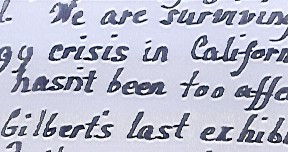 . We are surviving
gy crisis in Californ
hasnt been too affe
Gilbert's last exhib